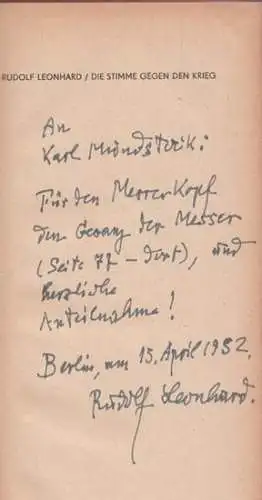 RUDOLF LEONHARD / DIE STIMME GEGEN DEN KRIEG
An
Karl Mundstock:
Für den Messerkopf
den Gesang der Messer
(Seite 77 – dort), und
herzliche
Anteilnahme!
Berlin, am 15. April 1952.
Rudolf Leonhard.